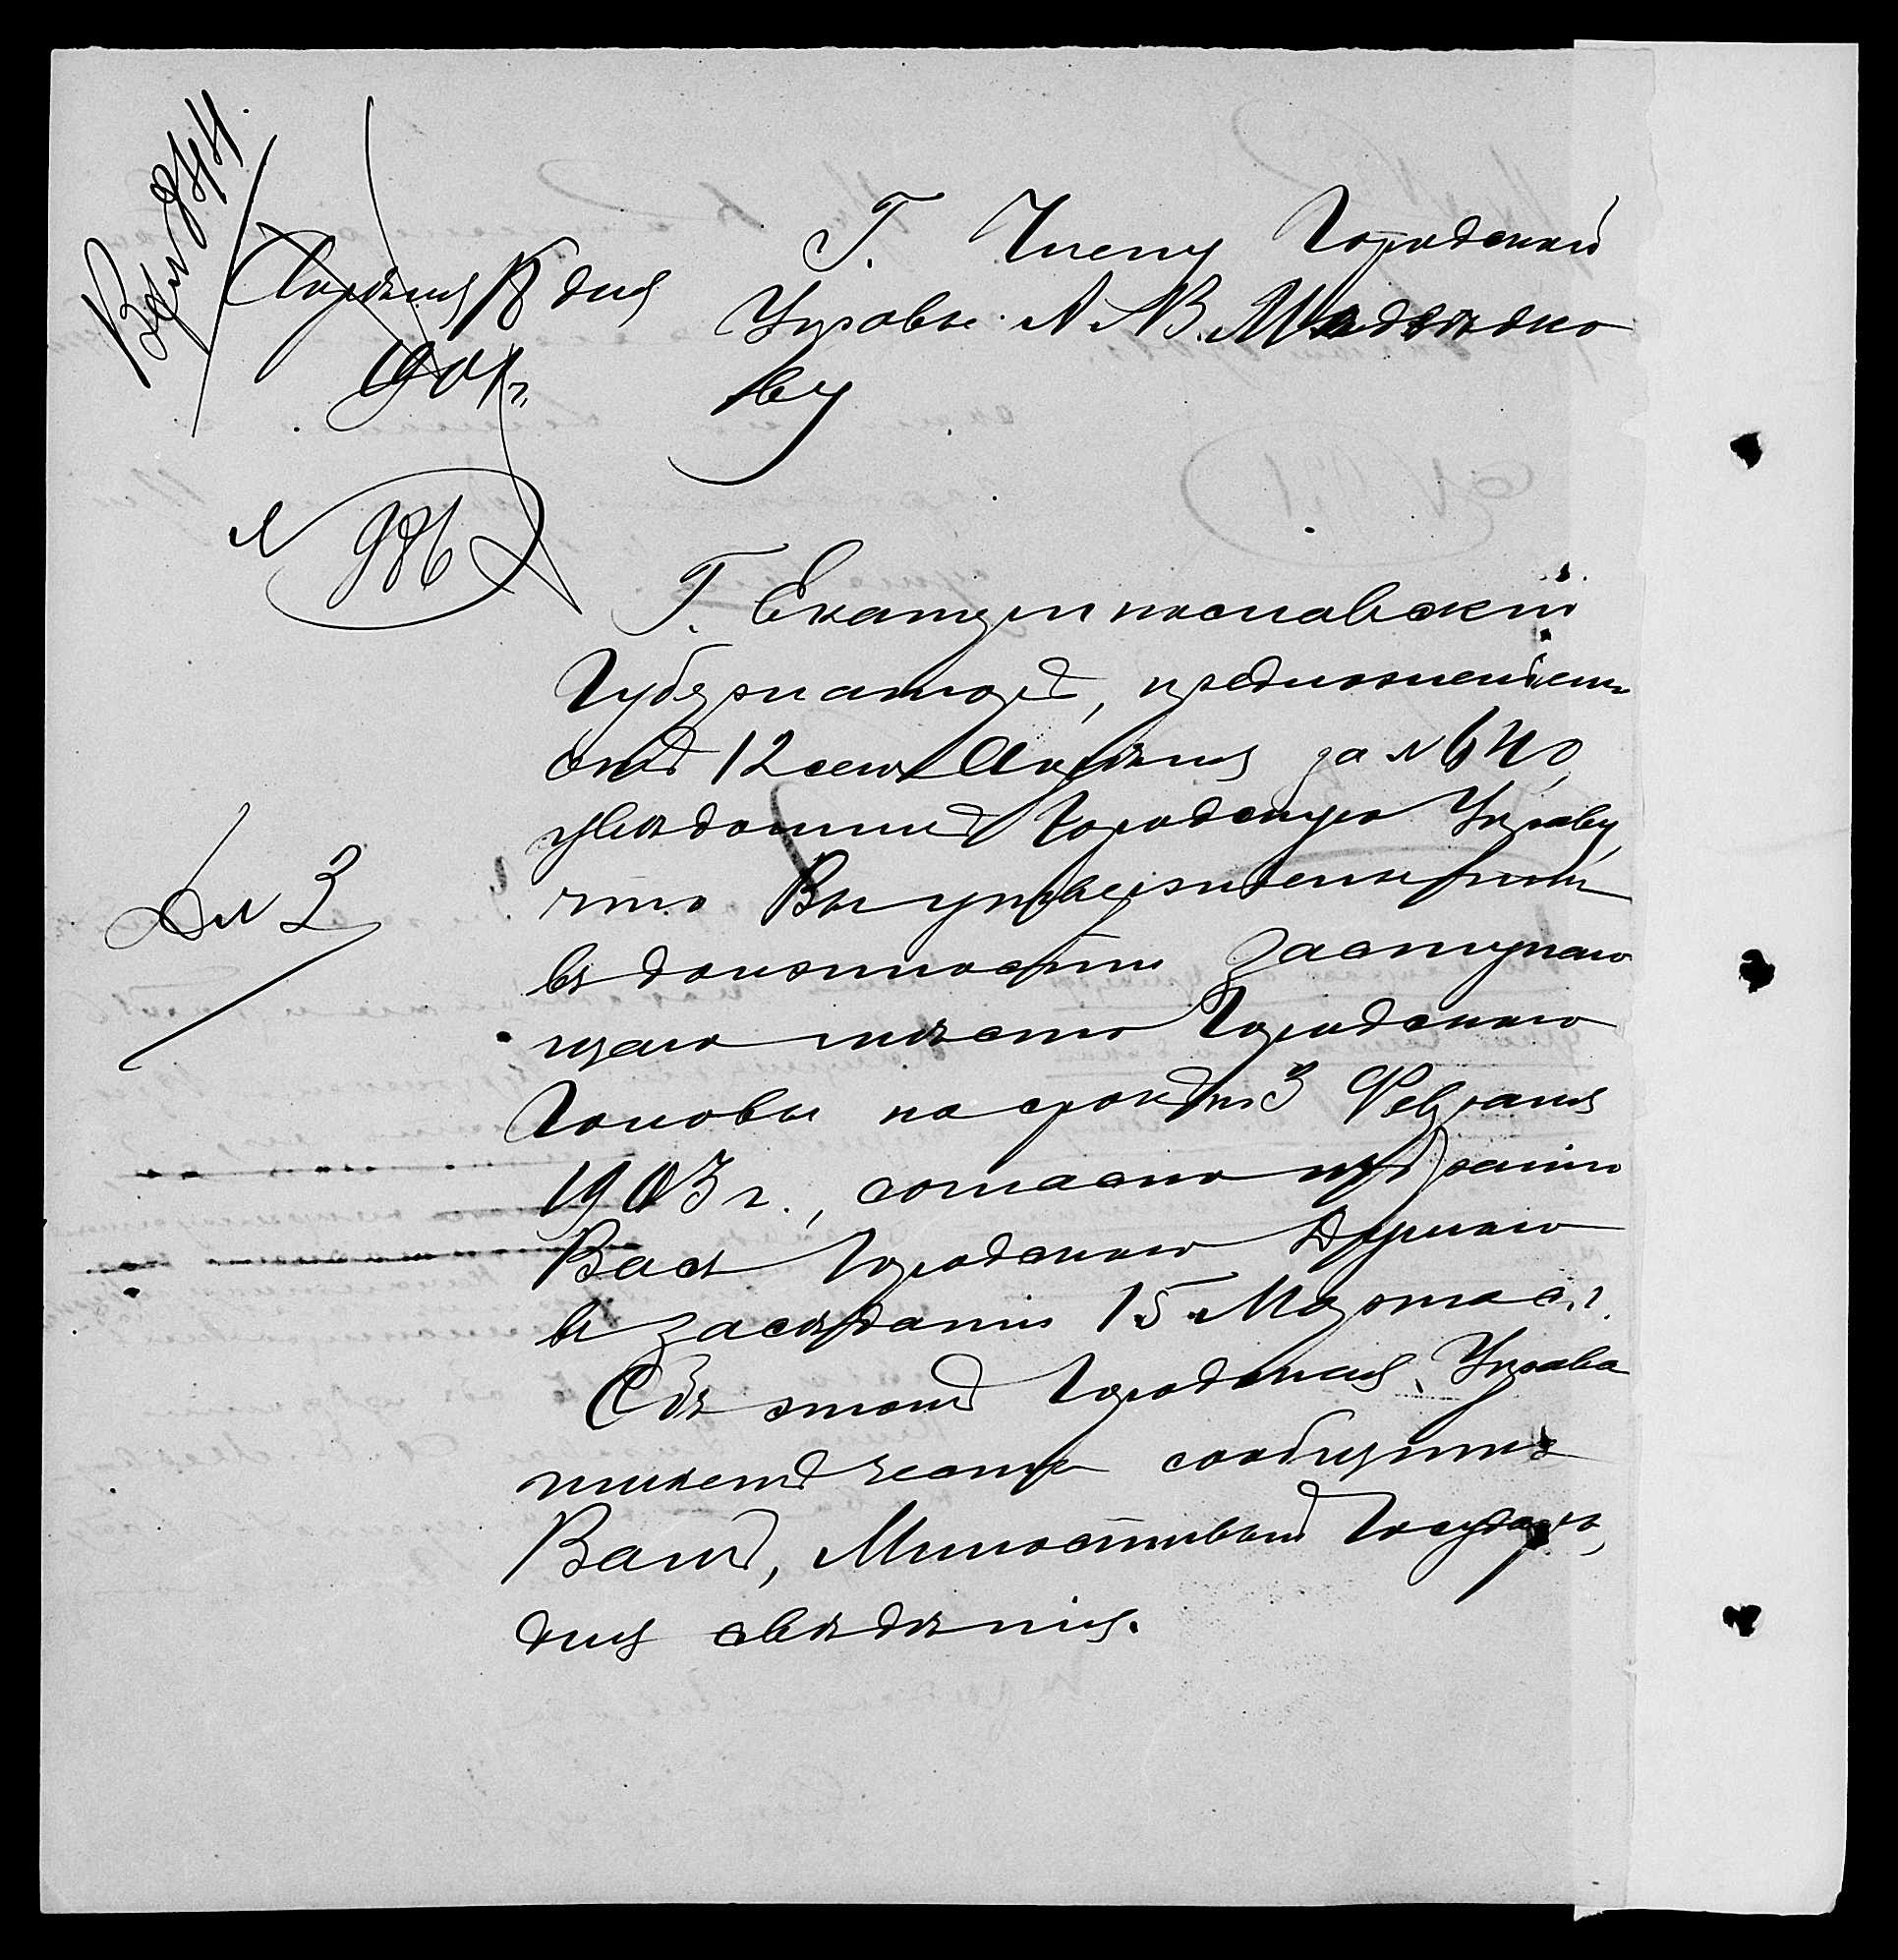 Апрѣля 18 дня
1901 г.
№ 986
Г. Члену Городской
Управы А. В. Медвѣдко
ву
Г. Екатеринославскій
Губернаторъ, предложеніемъ
отъ 12 сего Апрѣля за № 640,
увѣдомилъ Городскую Управу,
что Вы утверждены
въ должности заступаю
щаго мѣсто Городскаго
Головы на срокъ по 3 Февраля
1903 г., согласно избранію
Васъ Городскою Думою
въ засѣданіи 15 Марта с. г.
Объ этомъ Городская Управа
имѣетъ честь сообщить
Вамъ, Милостивый Государь,
для свѣдѣнія.
№ 3